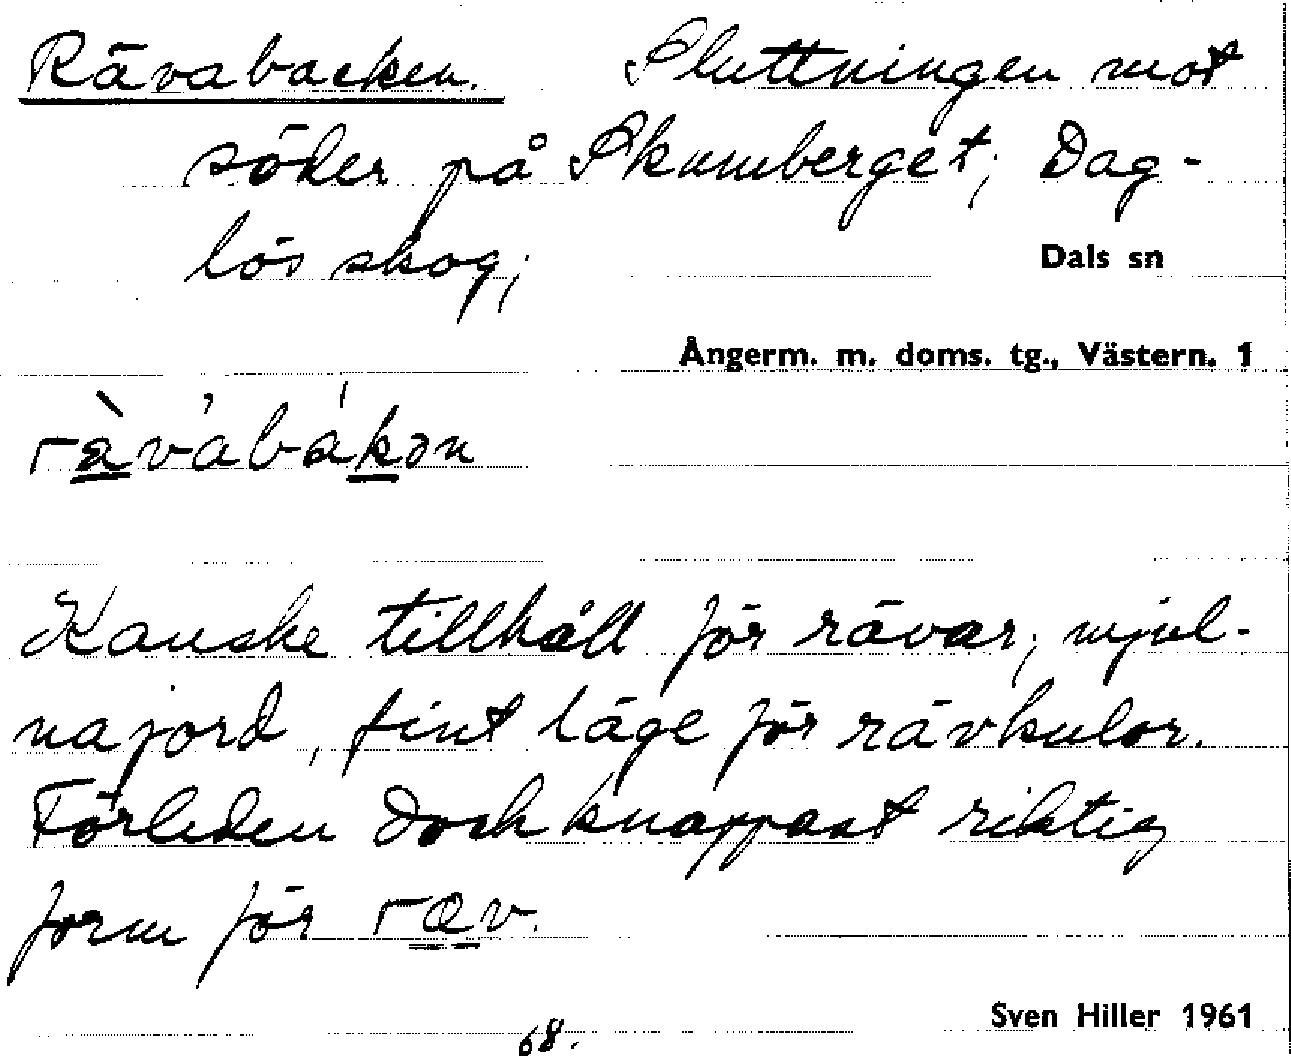 Rävabacken. Sluttningen mot
söder på Skumberget, Dag-
lös skog;
Dals sn
Ångerm. m. doms. tg., Västern. 1
Kanske tillhåll för rävar, mjäl-
najord, fint läge för rävkulor.
Förleden dock knappast riktig
form för ræv.
Sven Hiller 1961
68.